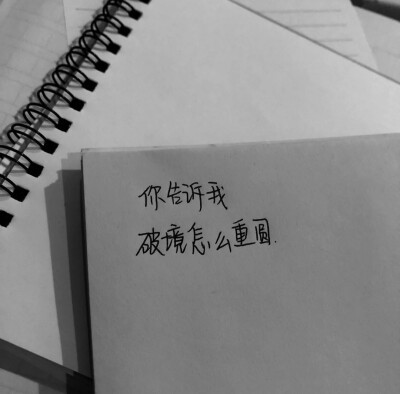 你告诉我
破境怎么重圆.